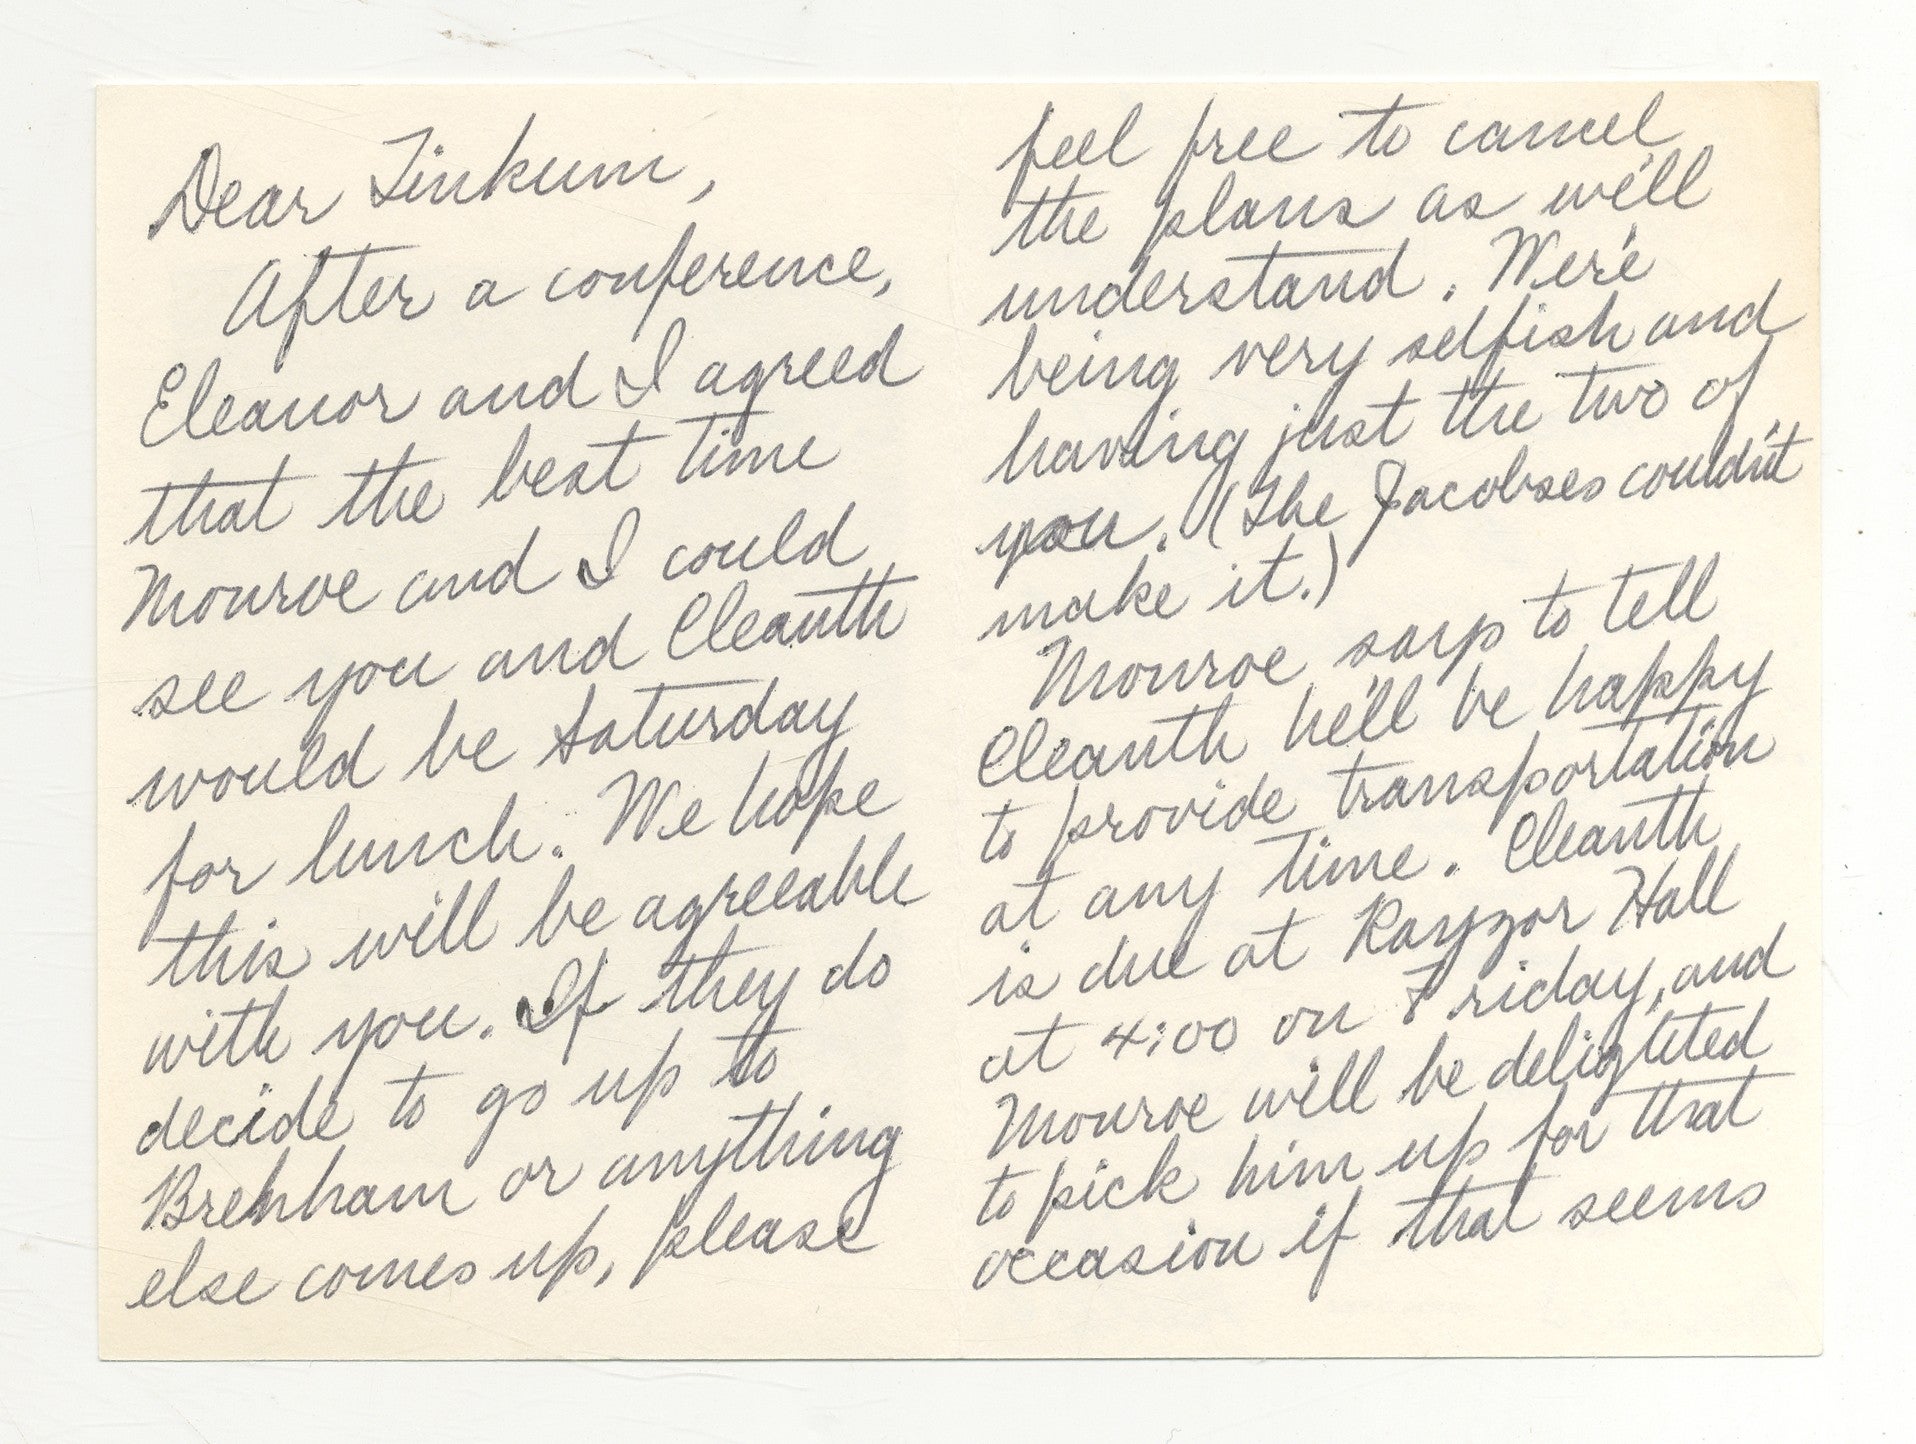 Dear Tinkum,
After a conference,
Eleanor and I agreed
that the best time
Monroe and I could
see you and Cleanth
would be Saturday
for lunch. We hope
this will be agreeable
with you. If they do
decide to go up to
Brenham or anything
else comes up, please
feel free to cancel
the plans as we'll
understand. We're
being very selfish and
having just the two of
you. (The Jacobses couldn't
make it.)
Monroe says to tell
Cleanth he'll be happy
to provide transportation
at any time. Cleanth
is due at Rayzor Hall
at 4:00 on Friday, and
Monroe will be delighted
to pick him up for that
occasion if that seems